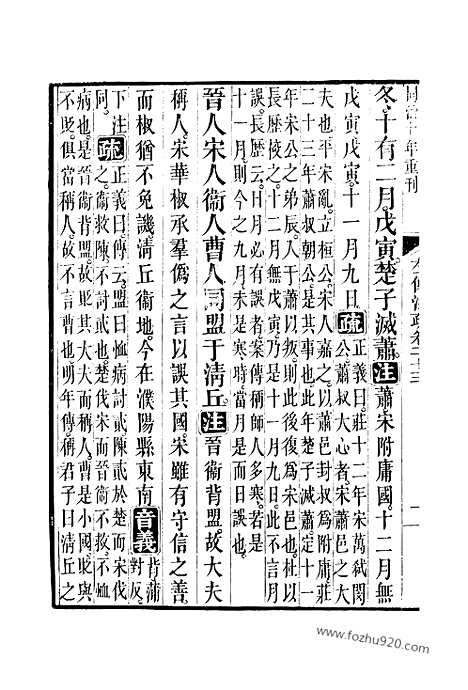 同治十年重刊
冬十有二月戊寅楚子滅蕭注蕭宋附庸國十二月無
戊寅戊寅十一月九日疏
正義曰莊十二年宋萬弒閔
公蕭叔大心者宋蕭邑之大
夫也平宋亂立桓公宋人嘉之以蕭邑封叔為附庸莊
二十三年蕭叔朝公是其事也此年楚子滅蕭定十一
年宋公之弟辰入于蕭以叛則此後復為宋邑也杜以
長歷校之十二月無戊寅乃是十一月九日此不言月
誤長歷云日月必有誤者案傳稱師人多寒若是
十一月則今之九月未是寒時當月是而日誤也
晉人宋人衞人曹人同盟于清丘注晉衞背盟故大夫
稱人宋華椒承羣偽之言以誤其國宋雖有守信之善
而椒猶不免譏清丘衞地今在濮陽縣東南音義
背蒲
對反
下注
同疏
正義曰傳云盟曰恤病討貳陳貳於楚而宋伐
之衞救陳不討貳也楚伐宋而晉衞不救不恤
病也是晉衞背盟故貶其大夫而稱人曹是小國貶與
不貶俱當稱人故不言曹也明年傳稱君子曰清丘之
www.fozhu920.com